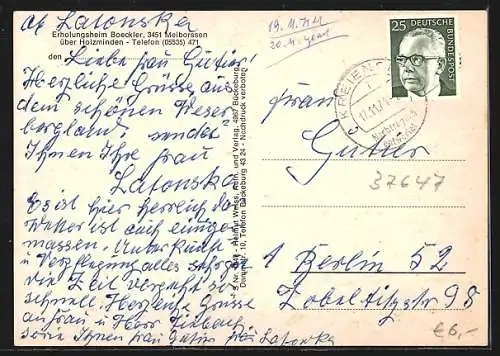 Erholungsheim Boeckler, 3451 Meiborssen
über Holzminden - Telefon (05535) 471
den
Liebe Frau Gutier!
Herzliche Grüsse aus
dem schönen Weser
bergland sendet
Ihnen Ihre Frau
Latonska
Es ist hier herrlich das
Wetter ist auch einiger
massen. Unterkunft
u Verpflegung alles sehr gut
die Zeit vergeht so
schnell. Herzliche Grüsse
an Frau u Herr
sowie Ihnen Frau Frau Latonska
Helmut Weiss, und Verlag, 4967 Bückeburg
10, Telefon Bückeburg 43 24 - Nachdruck verboten
25 DEUTSCHE
BUNDESPOST
Frau
37647
1 Berlin 52
Zobeltitzstr 98
€ 6,-